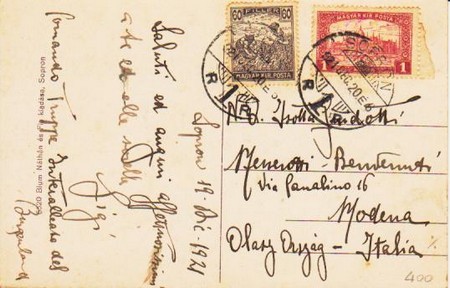 60 FILLÉR 60
MAGYAR KIR. POSTA
MAGYAR KIR. POSTA
1
1
SOPRON
921 DEC. 20.
R
R
Saluti ed auguri affettuosissimi
a te ed alle
Gigi
Sopron 19-Dic-1921
Comando Truppe Interalleate del
Burgenland
Blum Náthán és Fia kiadása, Sopron
N.D. Isotta
Menotti - Benvenuti
Via Canalino 16
Modena
Olasz Ország - Italia
400